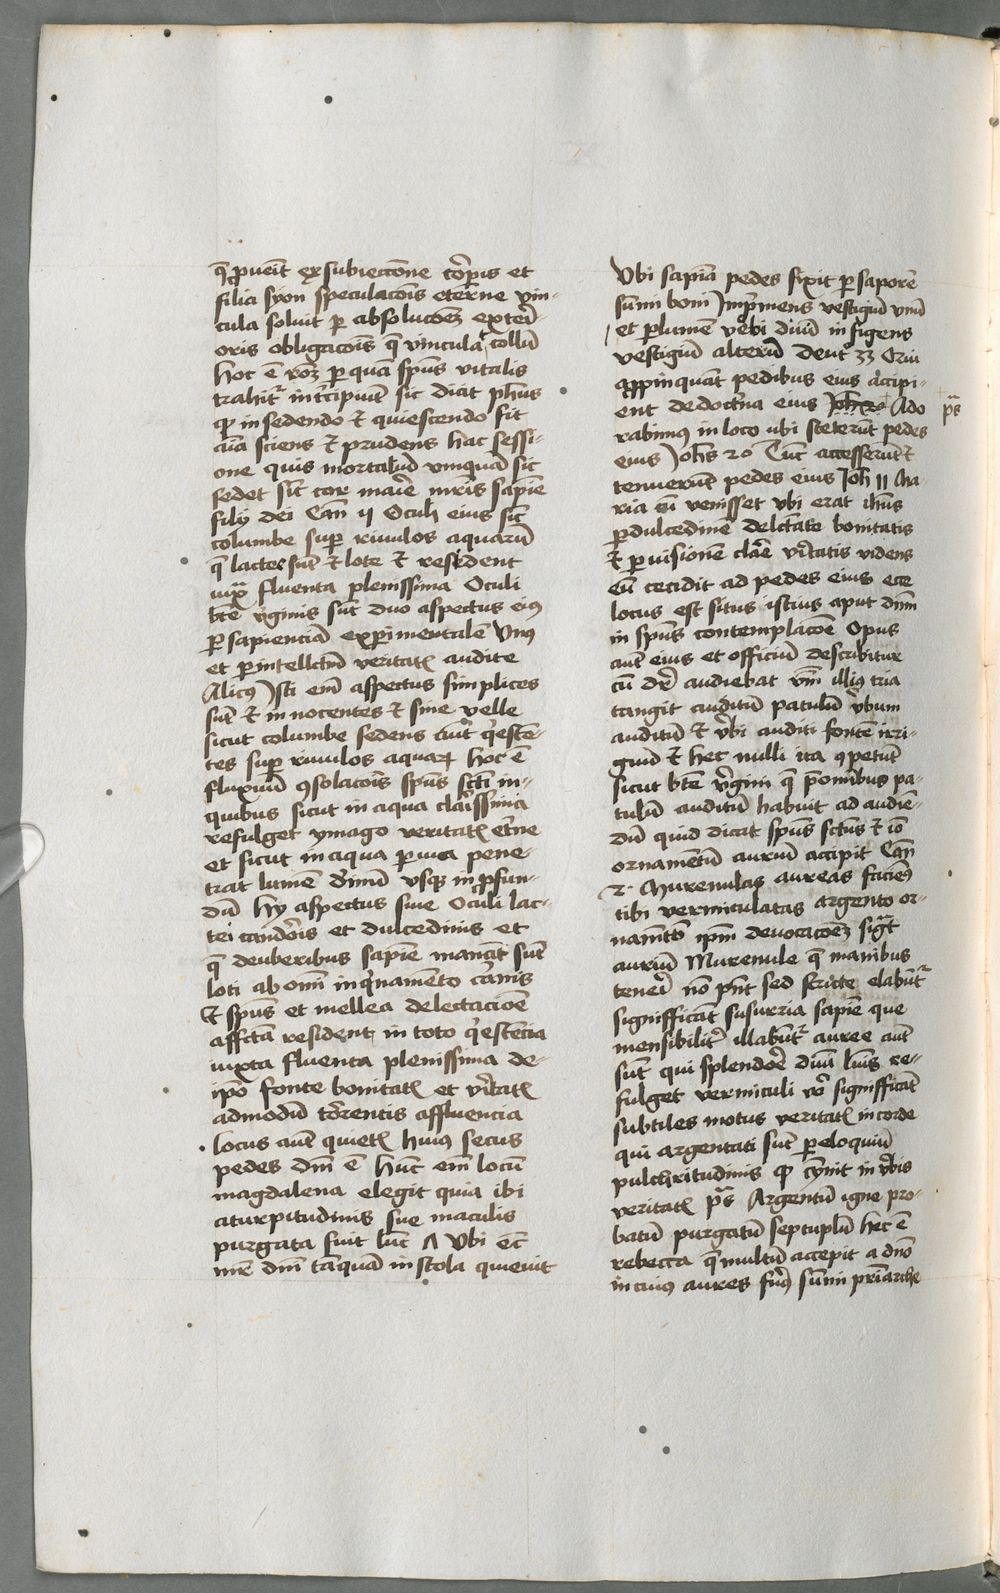 q̄ ꝓueīt ex subiectione cōrpis et
filia syon speculacōis eterne vin-
cula soluit ꝑ absolucōeꝫ exteri-
oris obligacōis q̄ vincula collū
hoc ē roꝫ ꝑ quā spūs vitalis
trahit᷑ sic dicit ph̄us
ꝙ in sedendo et quiescendo fit
aīa sciens et prudens hac sessi-
one quis mortaliū vmquā sic
sedet sic̄ cor mar̄ie mr̄is sapīe
filij dei Can̄ 11 Oculi eius sic̄
columbe suꝑ riuulos aquarū
q̄ lacte sūt et lote et resident
iux̄ fluenta plenissima Oculi
bt̄e v̄ginis sūt duo aspectus eiꝰ
ꝑ sapienciā exꝑimentalē vnꝰ
et ꝑ intellc̄tū veritatꝭ audite
Aliꝰ Isti em̄ aspectus simplices
sūt et innocentes et sine velle
sicut columbe sedens aut q̄esc̄e-
tes suꝑ riuulos aquaꝝ hoc ē
fluxuū ꝯsolacōis spūs sc̄ti in-
quibus sicut in aqua clarissima
refulget ymago veritatꝭ et̄ne
et sicut in aqua ꝑuia pene-
trat lumē diuinū vsqꝫ in ꝓfun-
dū hy aspectus siue Oculi lac-
tei candōris et dulcedinis et
q̄ de vberibus sapīe manāt sūt
loti ab om̄i inq̄namēto carnis
et spūs et mellea delectacioē
affc̄ta resident in toto q̄escēcia
iuxta fluenta plenissima de-
ipō fonte bonitatꝭ et v̄itatꝭ
admodū torentis affluencia
locus aut̄ quietꝭ huiꝰ secus
pedes dn̄i ē hūc em̄ locū
magdalena elegit quia ibi
a turpitudinis sue maculis
purgata fuit luc̄ Λ Vbi ec̄
mr̄e dn̄i tāquā in scola quieuit
Vbi sapīa pedes fixit ꝑ saporē
sūmi boni Imprimens vestigiū vnū
et ꝑ lumē v̄bi diuī infigens
vestigiū alterū Deut 33 Qui
appinquāt pedibus eius accipi-
ent de doctrina eius Ado
pˢ
rabimꝰ in loco ubi steterūt pedes
eius Johīs 20 Tūc accesserūt et
tenuerūt pedes eius Joh̄ 11 Ma-
ria cū venisset vbi erat ih̄us
ꝑ dulcedinē delc̄tate bonitatis
et ꝑ visionē clare v̄itatis videns
eū cecidit ad pedes eius ecce
locus est situs istius aput dn̄m
in spūs contemplacōe Opus
aut̄ eius et officiū describitur
cū dr̄ audiebat vm̄ illiꝰ tria
tangit auditū patulū v̄bum
auditū et v̄bi auditi fontē irri-
guū et hec nulli ita ꝯpetūt
sicut bt̄e v̄gini q̄ p̄ om̄ibus pa-
tulū auditū habuit ad audiē-
dū quid dicat spūs sc̄tus et iō
ornamētū auriū accipit Can̄
2 Murenulas aureas faciemꝰ
tibi vermiculatas argento or-
namētō ipm̄ deuocacōeꝫ sigᷓt
auriū Murenule q̄ manibus
teneri nō pn̄t sed stricte elabūt᷑
significāt susurria sapīe que
insensibilit̄ illabūt᷑ auree aut̄
sūt qui splendore diuī lum̄is re-
fulget vermiculi v̄o significāt
subtiles motus veritatꝭ in corde
qui argentati sūt ꝑ eloquiū
pulchritudinis ꝙ in v̄bis
veritatꝭ pˢ Argentū igne pro-
batū purgatū septuplū hec ē
rebecca q̄ multū accepit a dn̄o
in cuiꝰ aures sūmi prīarche